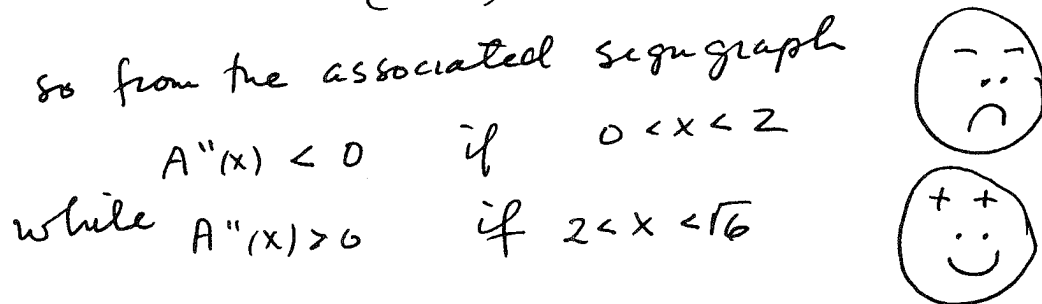 so from the associated signgraph
A"(x) < 0 if 0 < x < 2
while A"(x) > 0 if 2 < x < √6